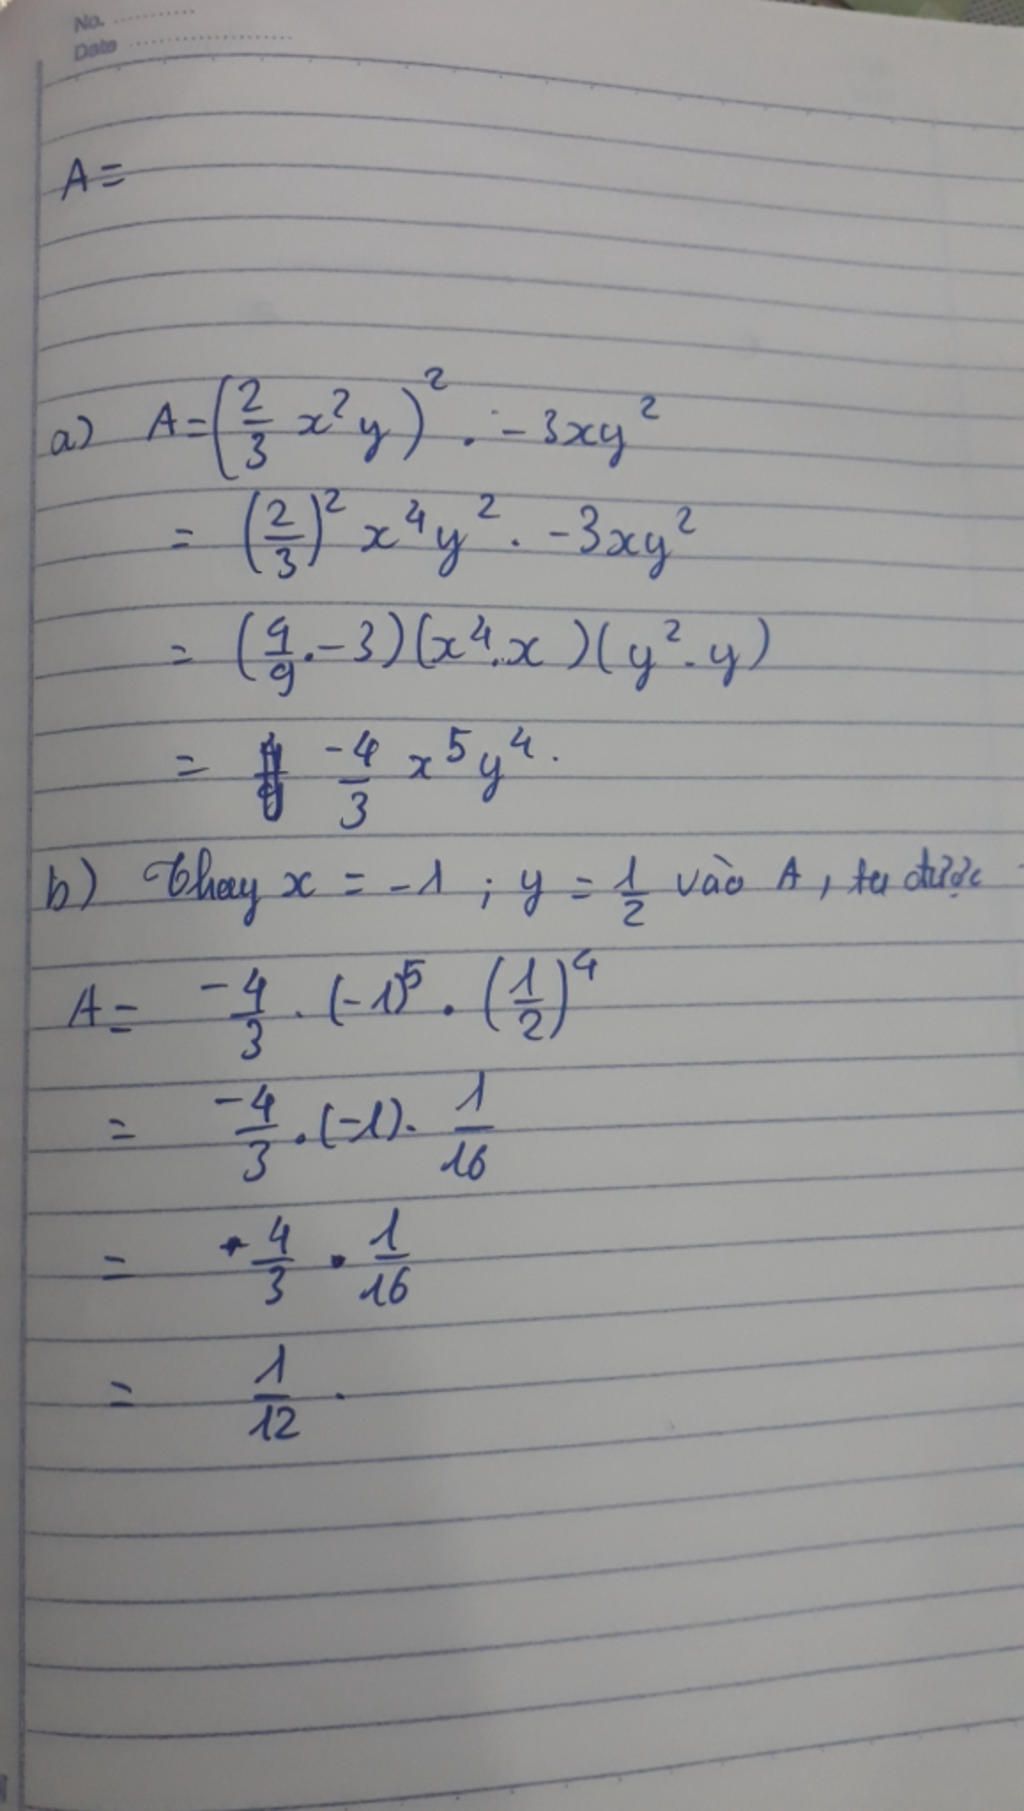 No. ..............
Date ..............................
A =
a) A = (2/3 x²y)² . -3xy²
= (2/3)² x⁴y² . -3xy²
= (4/9 . -3)(x⁴.x)(y².y)
= -4/3 x⁵y⁴.
b) Thay x = -1 ; y = 1/2 vào A, ta được
A = -4/3 . (-1)⁵ . (1/2)⁴
= -4/3 . (-1) . 1/16
= 4/3 . 1/16
= 1/12 .